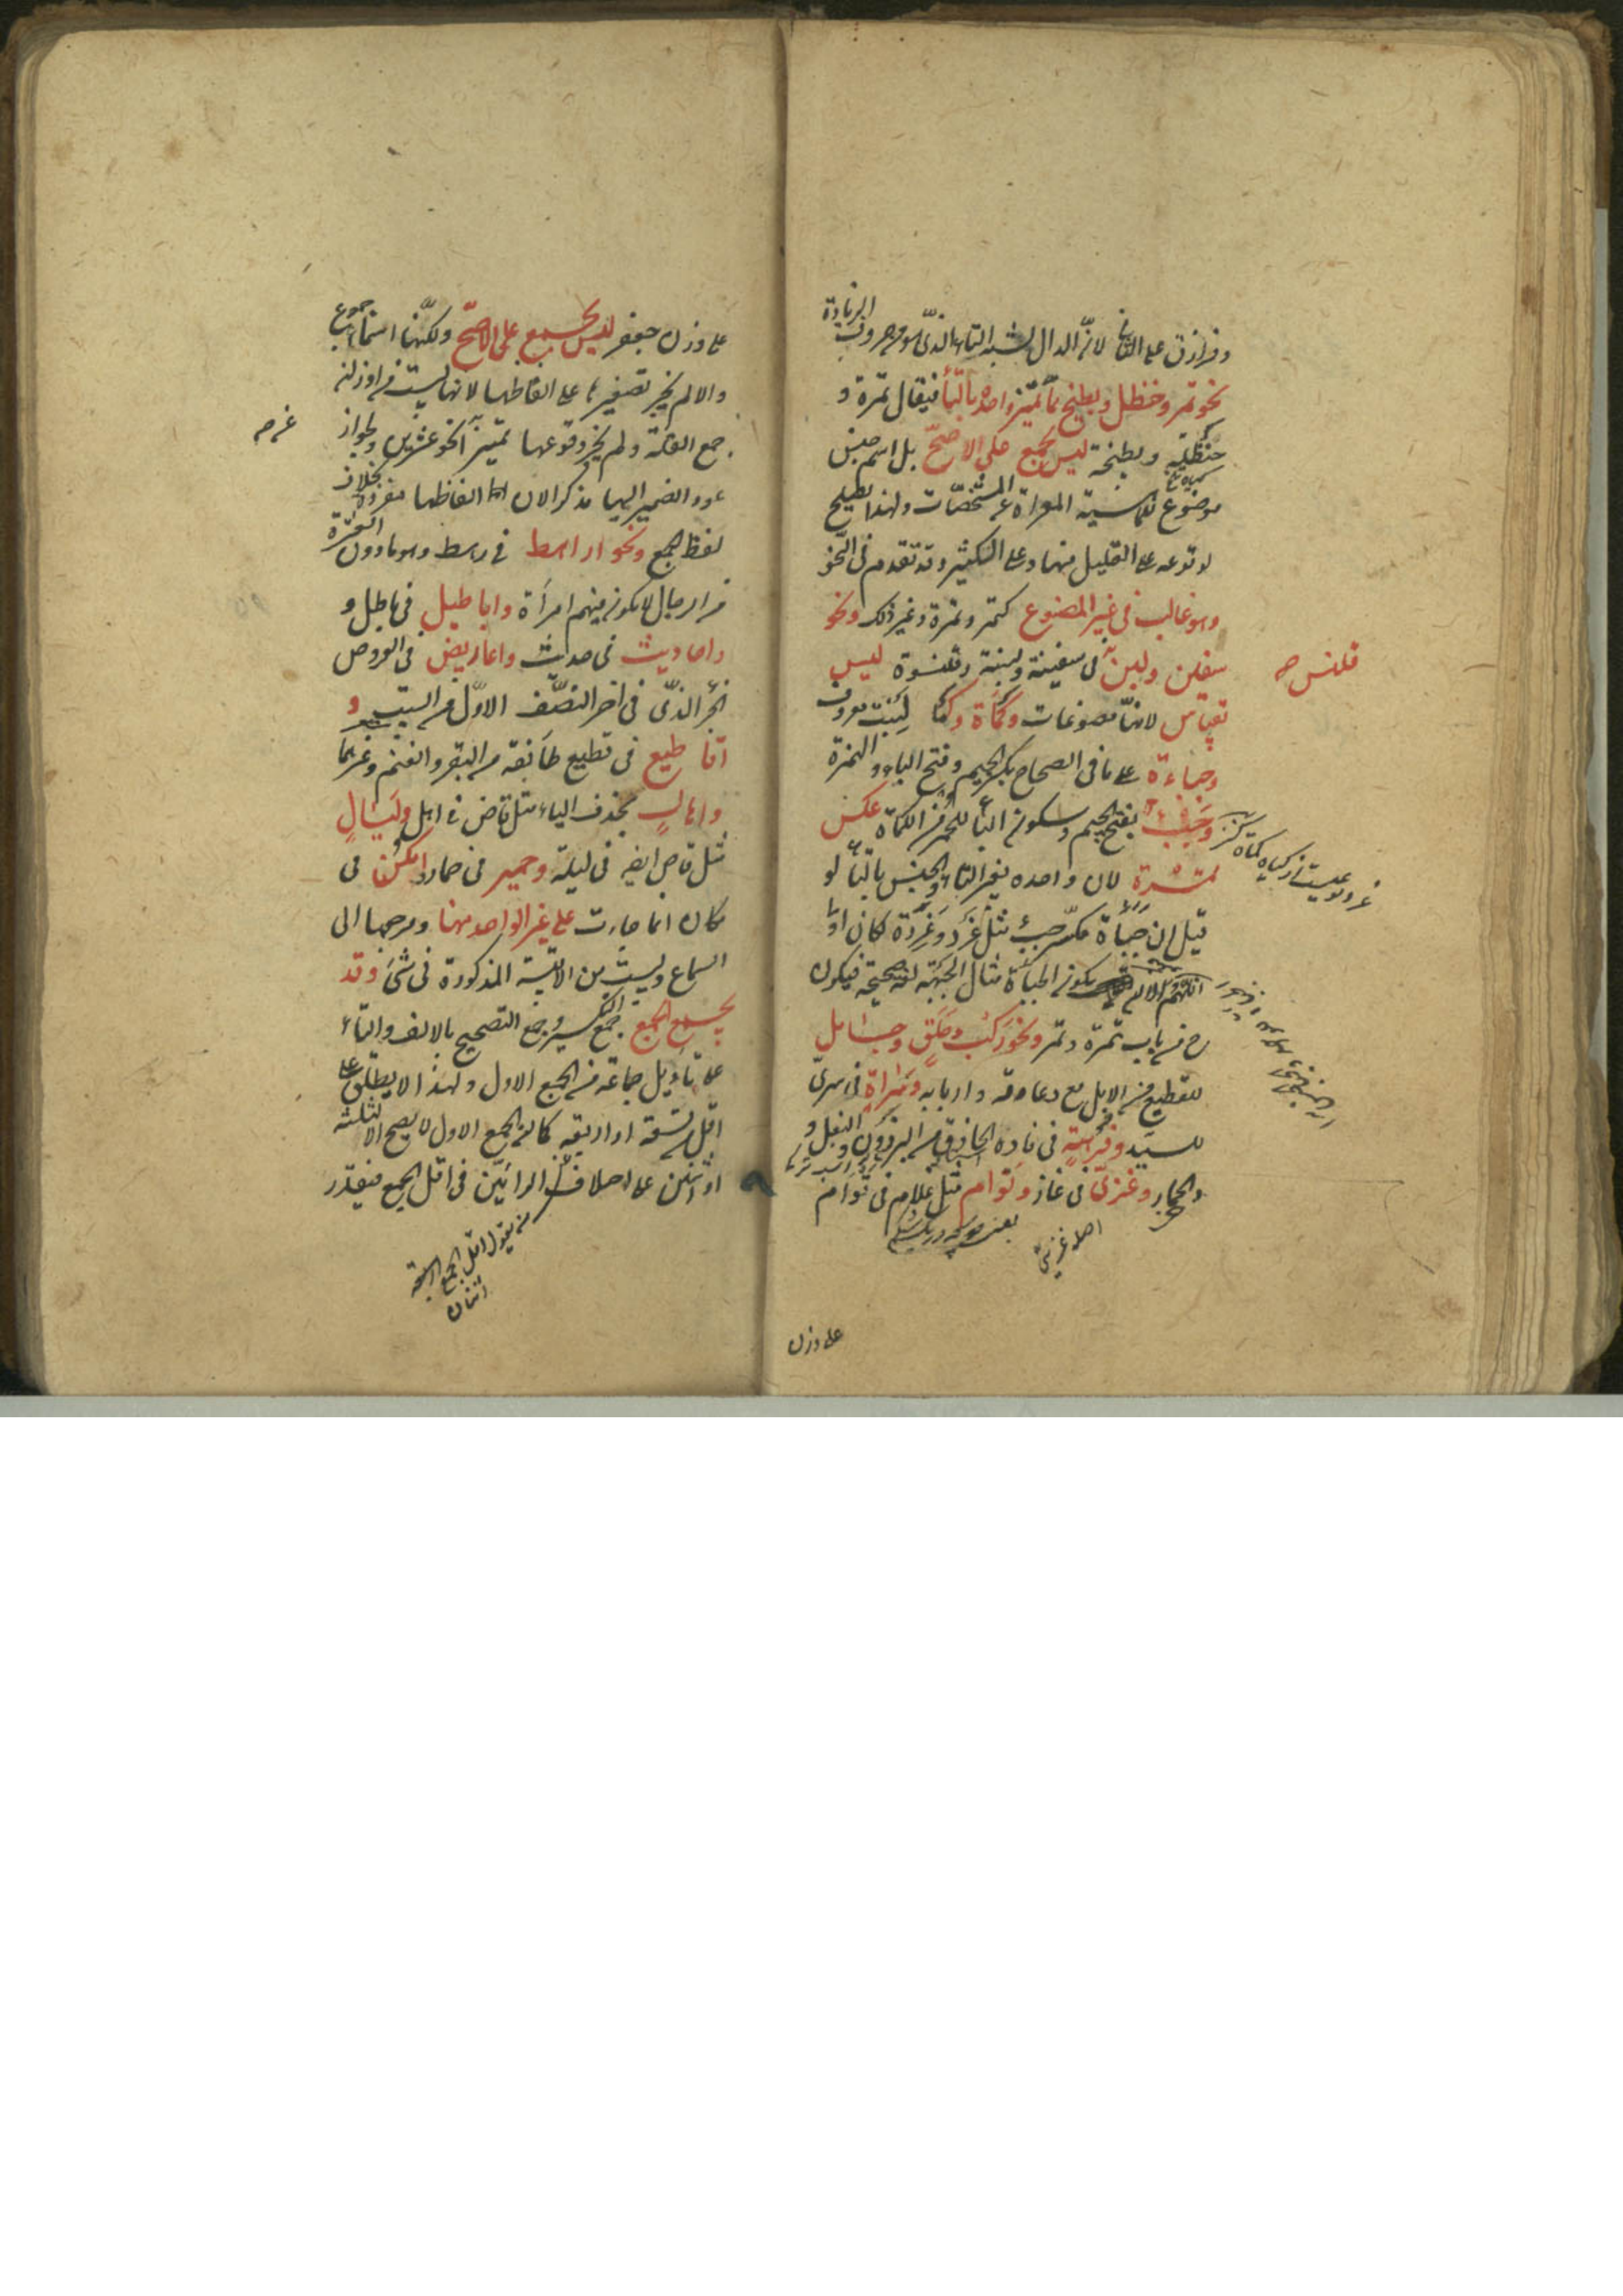 وفرازق على الشاذ لانّ الدال يشبه التاء الذى هو من حروف الزيادة
نحو تمر وحنظل وبطيخ ممّا تميّز واحده بالتّاء فيقال تمرة و
حنظلة وبطيخة ليس بجمع على الاصحّ بل اسم جنس
موضوع للماهية المعراة عن المشخصات ولهذا يصلح
لوقوعه على القليل منها وعلى الكثير وقد تقدم فى النحو
وهو غالب فى غير المصنوع كتمر وتمرة وغير ذلك ونحو
سفين ولبن فى سفينة ولبنة وقلنسوة ليس
قلنس صح
بقياس لانها مصنوعات وكمأة وكمأ لنبت معروف
وجباءة على ما فى الصحاح بكسر الجيم وفتح الباء والهمزة
وجبء بفتح الجيم وسكون الباء للحمر من الكمأة عكس
تمرة لان واحده بغير التاء والجنس بالتاء لو
قيل ان جبأة مكسر جبء مثل غرد وغردة كان اولى
اللهم الا ان يكون الجبأة مثال الجبهة لغة صحيحة فيكون
ح من باب تمرة وتمر ونحو ركب وحلق وجامل
للقطيع من الابل مع رعاوته واربابه وسراة فى سرىّ
للسيّد وفرهة فى فاره الحاذق من البرذون والبغل و
والحمار وغزىّ فى غاز وتؤام مثل غلام فى توأم
اصله غزيى
على وزن
على وزن جعفر ليس بجمع على الاصحّ ولكنّها اسماء جموع
والا لم يجز تصغيرها على الفاظها لانها ليست من اوزان
جمع القلة ولم يجز وقوعها تميزا نحو عشرين ولجواز
عود الضمير اليها مذكرا لان الفاظها مفردة بخلاف
لفظ الجمع ونحو اراهط فى رهط وهو ما دون العشرة
من الرجال لا يكون فيهم امرأة واباطيل فى باطل و
واحاديث فى حديث واعاريض فى العروض
الجزء الذى فى آخر النصف الاول من البيت و
اقاطيع فى قطيع طائفة من البقر والغنم وغيرهما
واهالٍ بحذف الياء مثل قاض فى اهل وليالٍ
مثل قاض ايضا فى ليلة وحمير فى حمار وامكن فى
مكان انما جاءت على غير الواحد منها ومرجعها الى
السماع وليست من الابنية المذكورة فى شئ وقد
يجمع الجمع جمع التكسير وجمع التصحيح بالالف والتاء
على تأويل جماعة من الجمع الاول ولهذا لا يطلق على
اقل من تسعة او اربعة كما ان الجمع الاول لا يصح الا لثلثة
او اثنين على اختلاف الرائيين فى اقل الجمع فيقدّر
من يقول اقل الجمع
اثنان